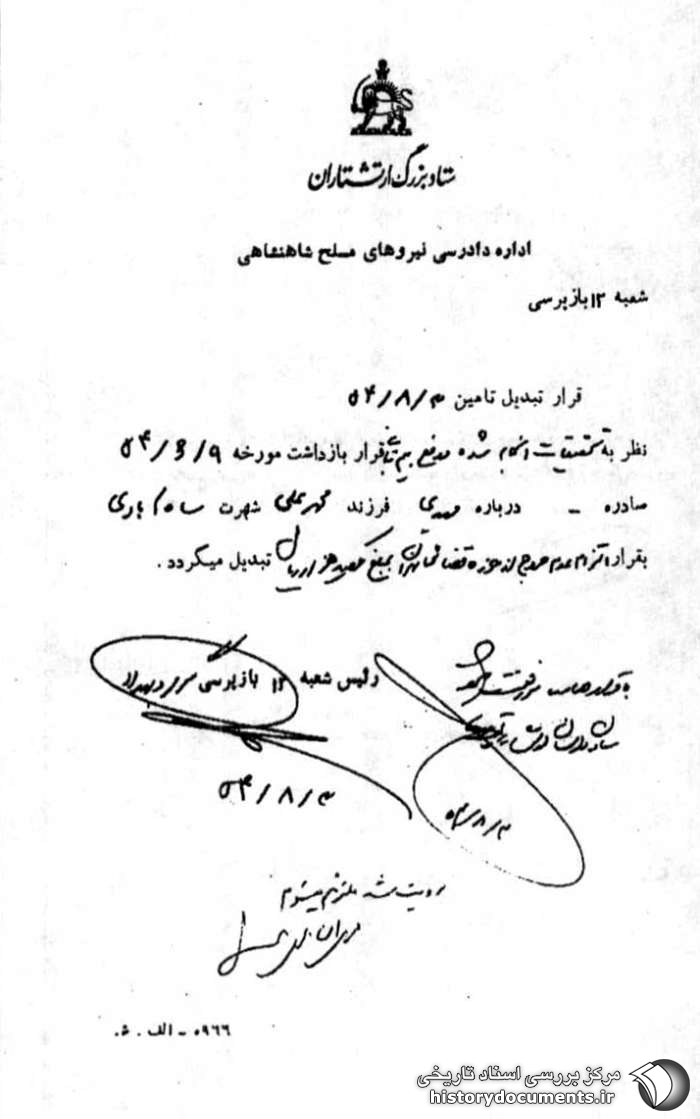 ستاد بزرگ ارتشتاران
اداره دادرسی نیروهای مسلح شاهنشاهی
شعبه ۱۲ بازپرسی
قرار تبدیل تامین ۵۴/۸/۳
نظر به تحقیقات انجام شده و رفع بیم تبانی قرار بازداشت مورخه ۵۴/۶/۹
صادره - درباره مهدی فرزند محمدعلی شهرت
بقرار التزام عدم خروج از حوزه قضائی تهران بمبلغ هزار ریال تبدیل میگردد.
رئیس شعبه ۱۲ بازپرسی
با قرار صادره موافقت
۵۴/۸/۳
۵۴/۸/۳
رویت شد ملتزم میشوم
۵۹۶۶ - الف. ش.
مرکز بررسی اسناد تاریخی
historydocuments.ir